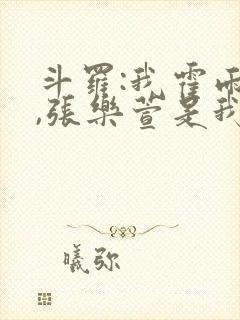 斗羅:我霍雨
,張樂萱是我
曦弥